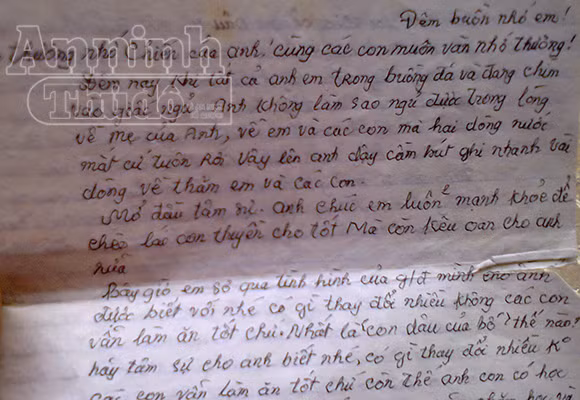 Đêm buồn nhớ em!
Thương nhớ Chiên của anh! cùng các con muôn vàn nhớ thương!
Đêm nay Như tất cả anh em trong buồng đã và đang chìm
vào giấc ngủ. Anh không làm sao ngủ được trong lòng
về mẹ của Anh, về em và các con mà hai dòng nước
mắt cứ tuôn Rơi vậy lên anh dậy cầm bút ghi nhanh vài
dòng về thăm em và các con.
Mở đầu tâm sự. anh chúc em luôn² mạnh khỏe để
chèo lái con thuyền cho tốt Mà còn kêu oan cho anh
nữa
Bây giờ em sơ qua tình hình của g/đ mình cho anh
được biết với nhé có gì thay đổi nhiều không các con
vẫn làm ăn tốt chứ. Nhất là con dâu của bố thế nào,
hãy tâm sự cho anh biết nhé, có gì thay đổi nhiều K°
các con vẫn làm ăn tốt chứ còn thế anh con có học
An ninh
Thủ đô